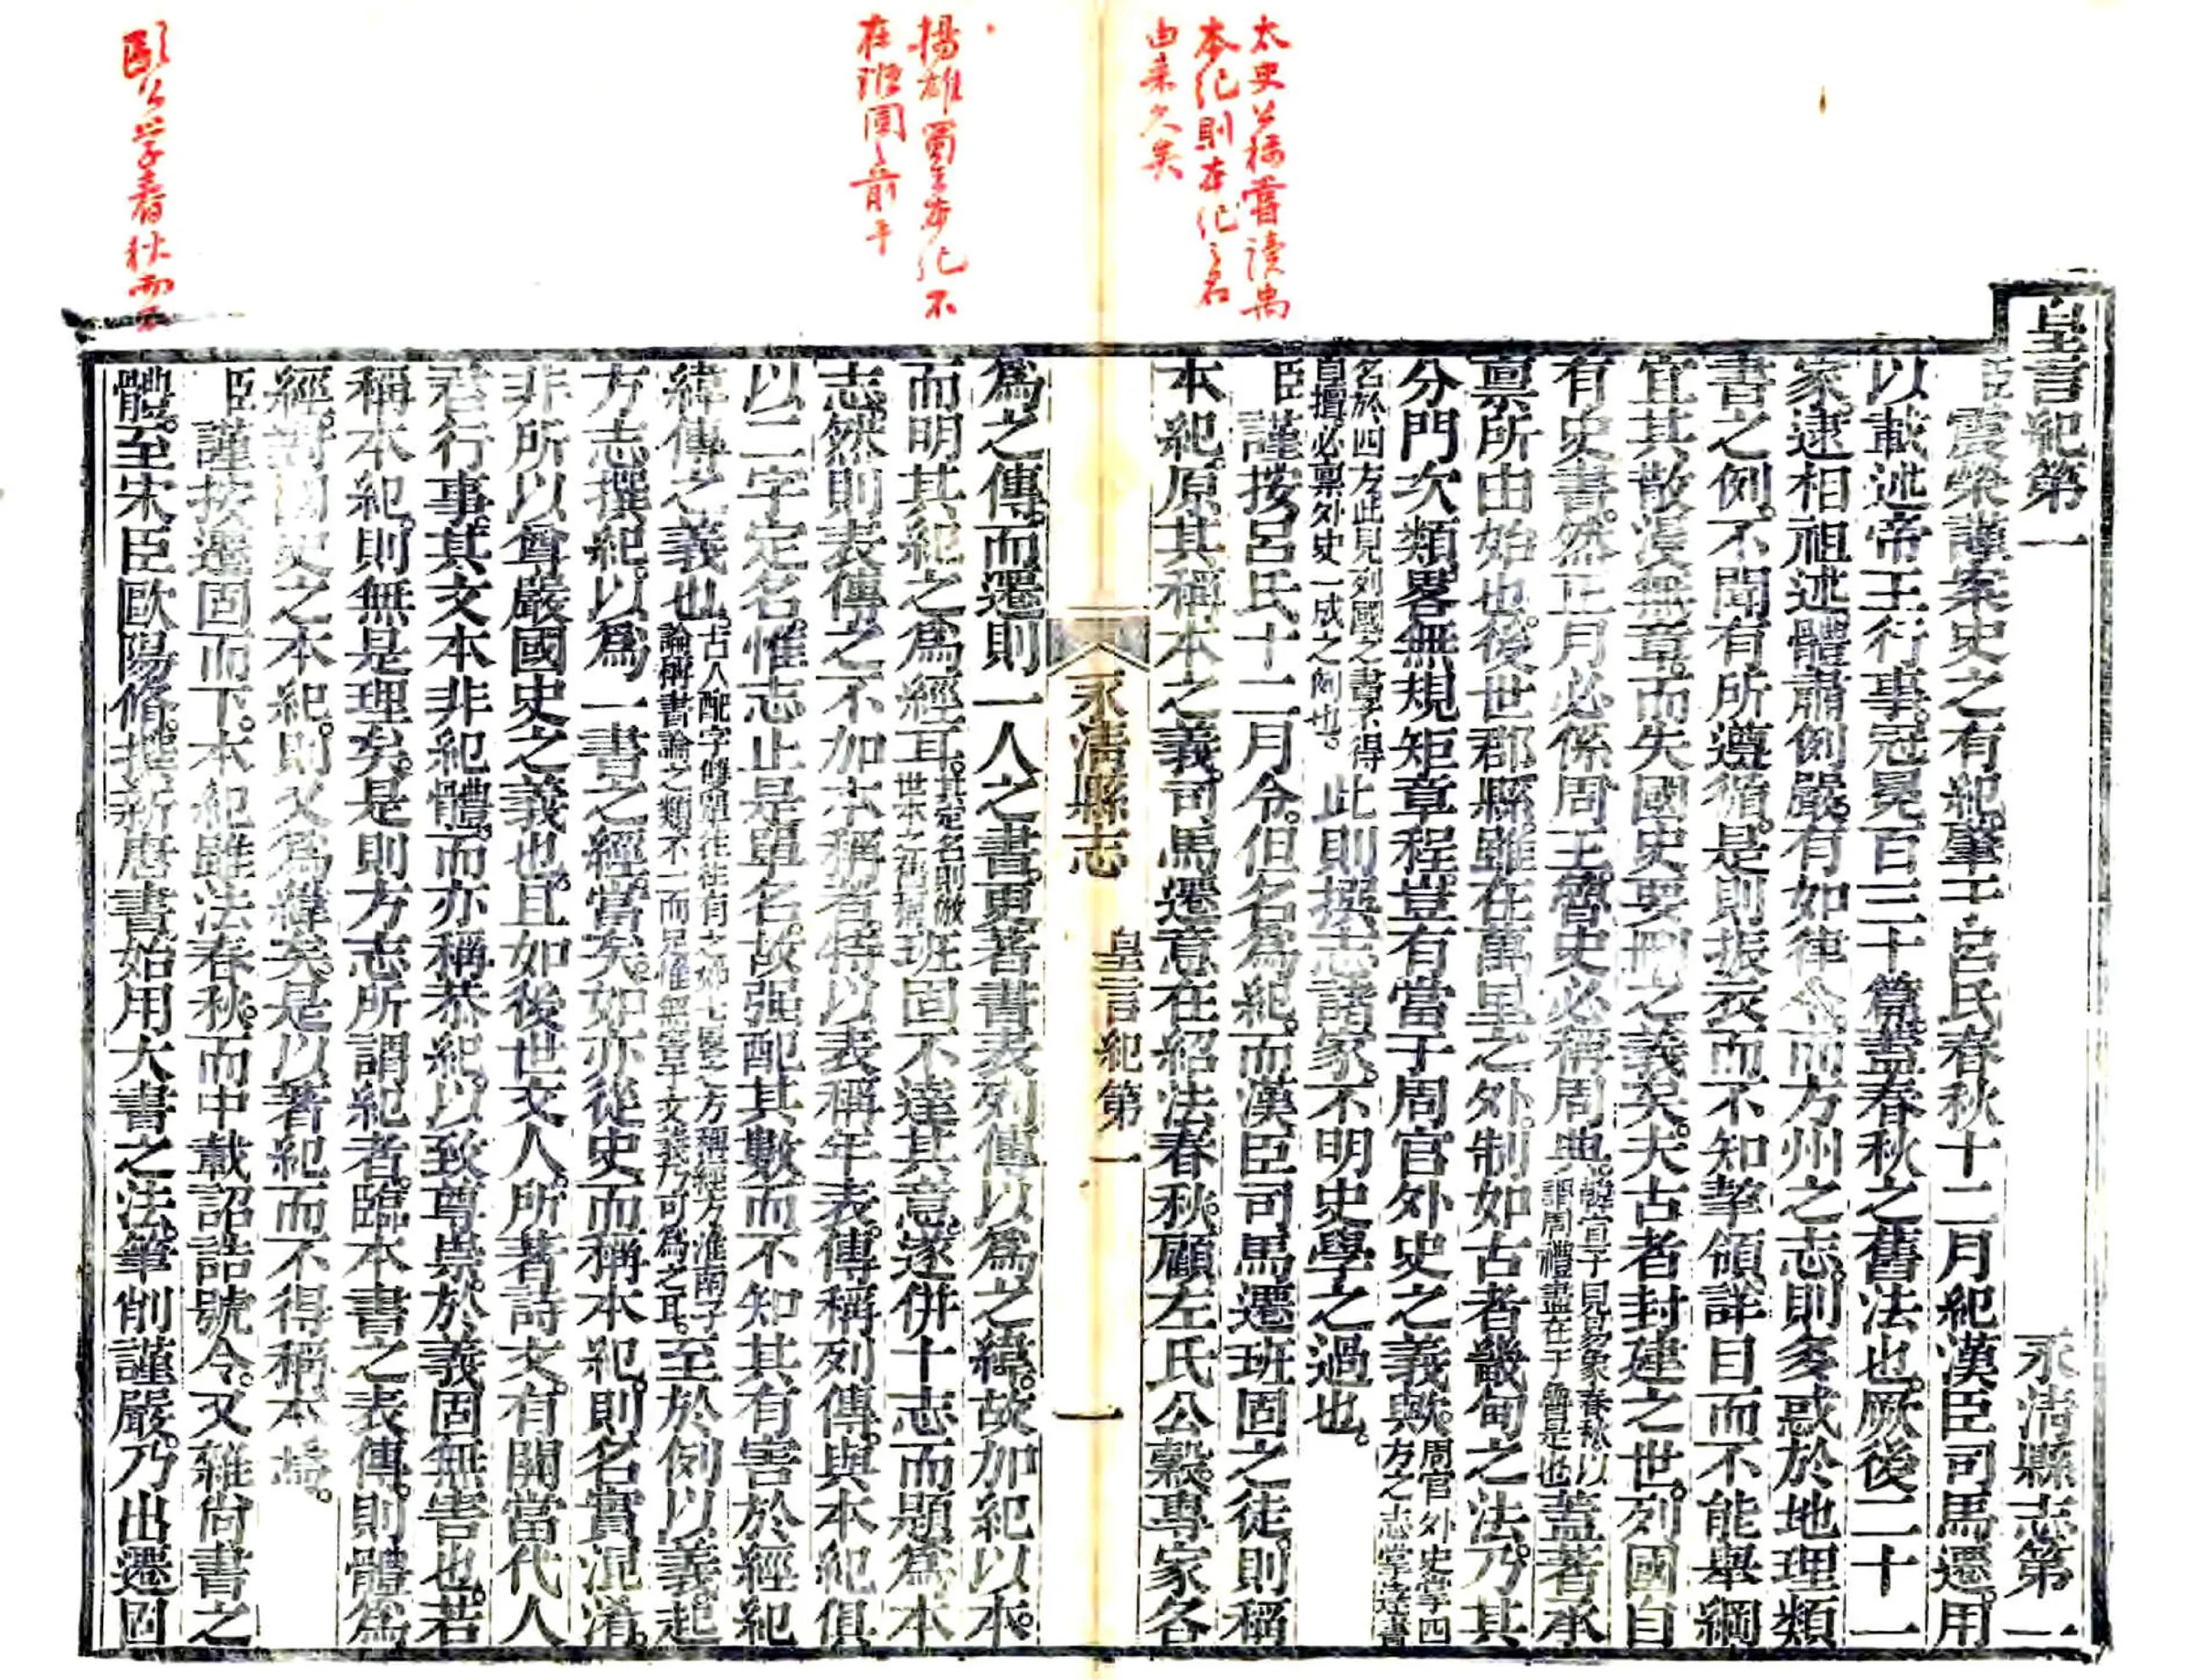 皇言紀第一　永清縣志第一
臣震榮謹案史之有紀。肇于呂氏春秋十二月紀漢臣司馬遷。用
以載述帝王行事。冠冕百三十篇。蓋春秋之舊法也。厥後二十一
家。遞相祖述。體肅例嚴。有如律令。而方州之志。則多惑於地理類
書之例。不聞有所遵循。是則振衣而不知挈領。詳目而不能舉綱
宜其散漫無章。而失國史要刪之義矣。夫古者封建之世。列國自
有史書。然正月必係周王。魯史必稱周典。韓宣子見易象春秋。以謂周禮盡在于魯是也蓋著承
禀所由始也。後世郡縣。雖在萬里之外。制如古者畿甸之法。乃其
分門次類。畧無規矩章程。豈有當于周官外史之義歟。周官外史掌四方之志掌達書
名於四方此見列國之書不得自擅必禀外史一成之例也。此則撰志諸家。不明史學之過也。
臣謹按呂氏十二月令。但名為紀。而漢臣司馬遷班固之徒。則稱
本紀。原其稱本之義。司馬遷意在紹法春秋。顧左氏公穀。專家各
太史公稱嘗讀禹
本紀則本紀之名
由來久矣
永清縣志　皇言紀第一　一
為之傳。而遷則一人之書。更著書表列傳以為之緯。故加紀以本。
而明其紀之為經耳。其定名則倣世本之舊稱班固不達其意。遂併十志而題為本
志。然則表傳之不加本稱者。特以表稱年表。傳稱列傳。與本紀俱
以二字定名。惟志止是單名。故强配其數。而不知其有害於經紀
緯傳之義也。古人配字雙單往往有之如七畧之方稱經方淮南子論稱書論之類不一而足惟無害于文義乃可為之耳。至於例以義起
方志撰紀。以為一書之經。當矣。如亦從史而稱本紀。則名實混淆。
非所以尊嚴國史之義也。且如後世文人。所著詩文。有關當代人
君行事。其文本非紀體。而亦稱恭紀。以致尊崇。於義固無害也。若
稱本紀。則無是理矣。是則方志所謂紀者。臨本書之表傳。則體為
經。對國史之本紀。則又為緯矣。是以著紀而不得稱本焉。
臣謹按遷固而下。本紀雖法春秋。而中載詔誥號令。又雜尚書之
體。至宋臣歐陽修撰新唐書。始用大書之法。筆削謹嚴。乃出遷固
揚雄蜀王本紀不
在班固之前乎
歐公學春秋而云